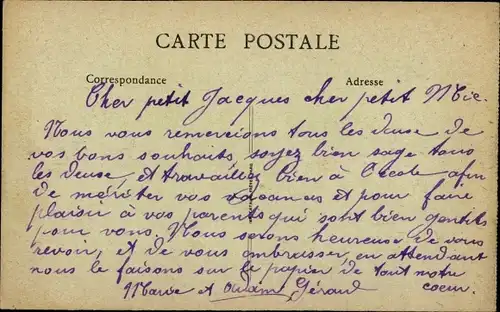 CARTE POSTALE
Correspondance Adresse
Cher petit Jacques cher petit Mic.
Nous vous remercions tous les deuse de
vos bons souhaits, soyez bien sage tous
les deuse, et travaillez bien à l'école afin
de mériter vos vacances et pour faire
plaisir à vos parents qui sont bien gentils
pour vous. Nous serons heureuse de vous
revoir, et de vous embrasser, en attendant
nous le faisons sur le papier de tout notre
Marie et Gérard coeur.